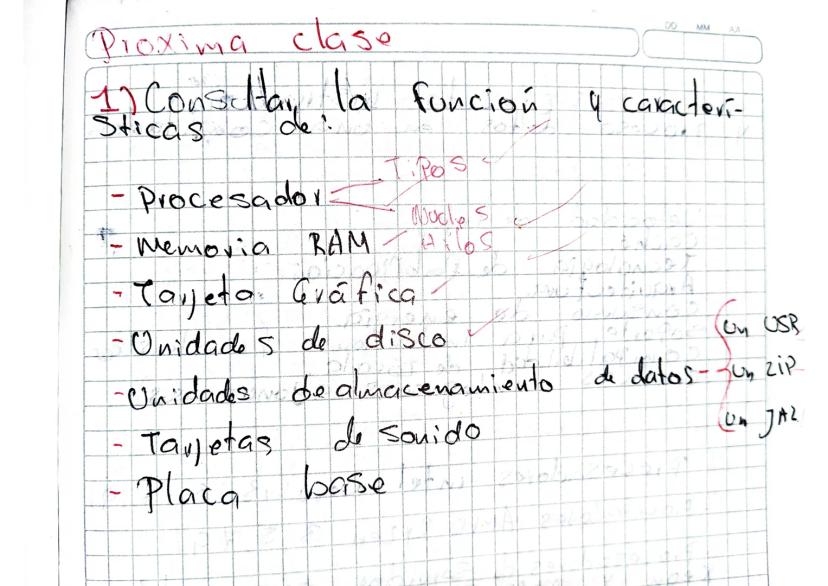 DD MM AA
Proxima clase
1) Consultar la función y caracterí-
sticas de:
- Procesador
Tipos
Nucleos
Hilos
- Memoria RAM
- Tarjeta Gráfica
- Unidades de disco
- Unidades de almacenamiento de datos -
Un USB
Un ZIP
Un JAZ
- Tarjetas de sonido
- Placa base